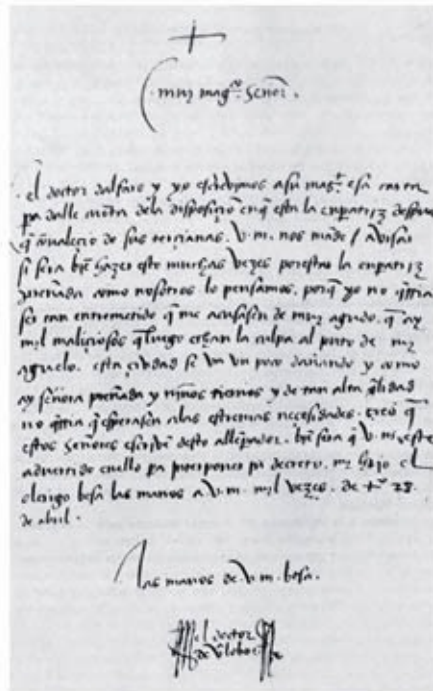 muy mag.co señor.
el doctor dalfaro y yo escrevymos a su mag.t esa carta
pa dalle cuēta dela disposiciō en q̄ esta la enperatriz despues
q̄ cōvalecio de sus tercianas. v.m. nos mãde / avisar
si sera biē hazer esto muchas vezes por estar la enperatriz
preñada como nosotros lo pensamos, porq̄ yo no q̄rria
ser tan entremetido q̄ me acusasen de muy agudo. q̄ ay
mil maliciosos q̄ luego echan la culpa al puto de my
aguelo. esta ciudad se va un poco dañando y como
ay señora preñada y niños tiernos y de tan alta q̄lidad
no q̄rria q̄ esperasen a las estremas necesidades. creo q̄
estos señores escrivē desto al enperador. biē sera q̄ v.m. este
advertido en ello pa interponer su decreto. my hijo el
clerigo besa las manos a v.m. mil vezes. de t.o 28.
de abril.
las manos de v.m. besa.
el doctor
de villalobos